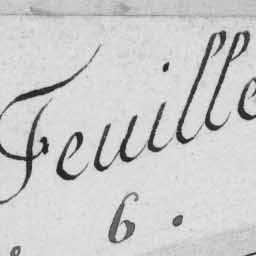 Feuille
6.